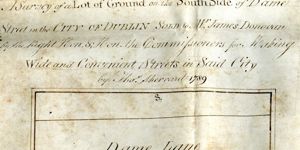 A Survey of a Lot of Ground on the South Side of Dame
Street in the CITY OF DUBLIN Sold by Mr. James Donovan
By the Right Hon. & Hon. the Commissioners for Making
Wide and Convenient Streets in Said City
by Thos. Sherrard 1789
Dame Lane